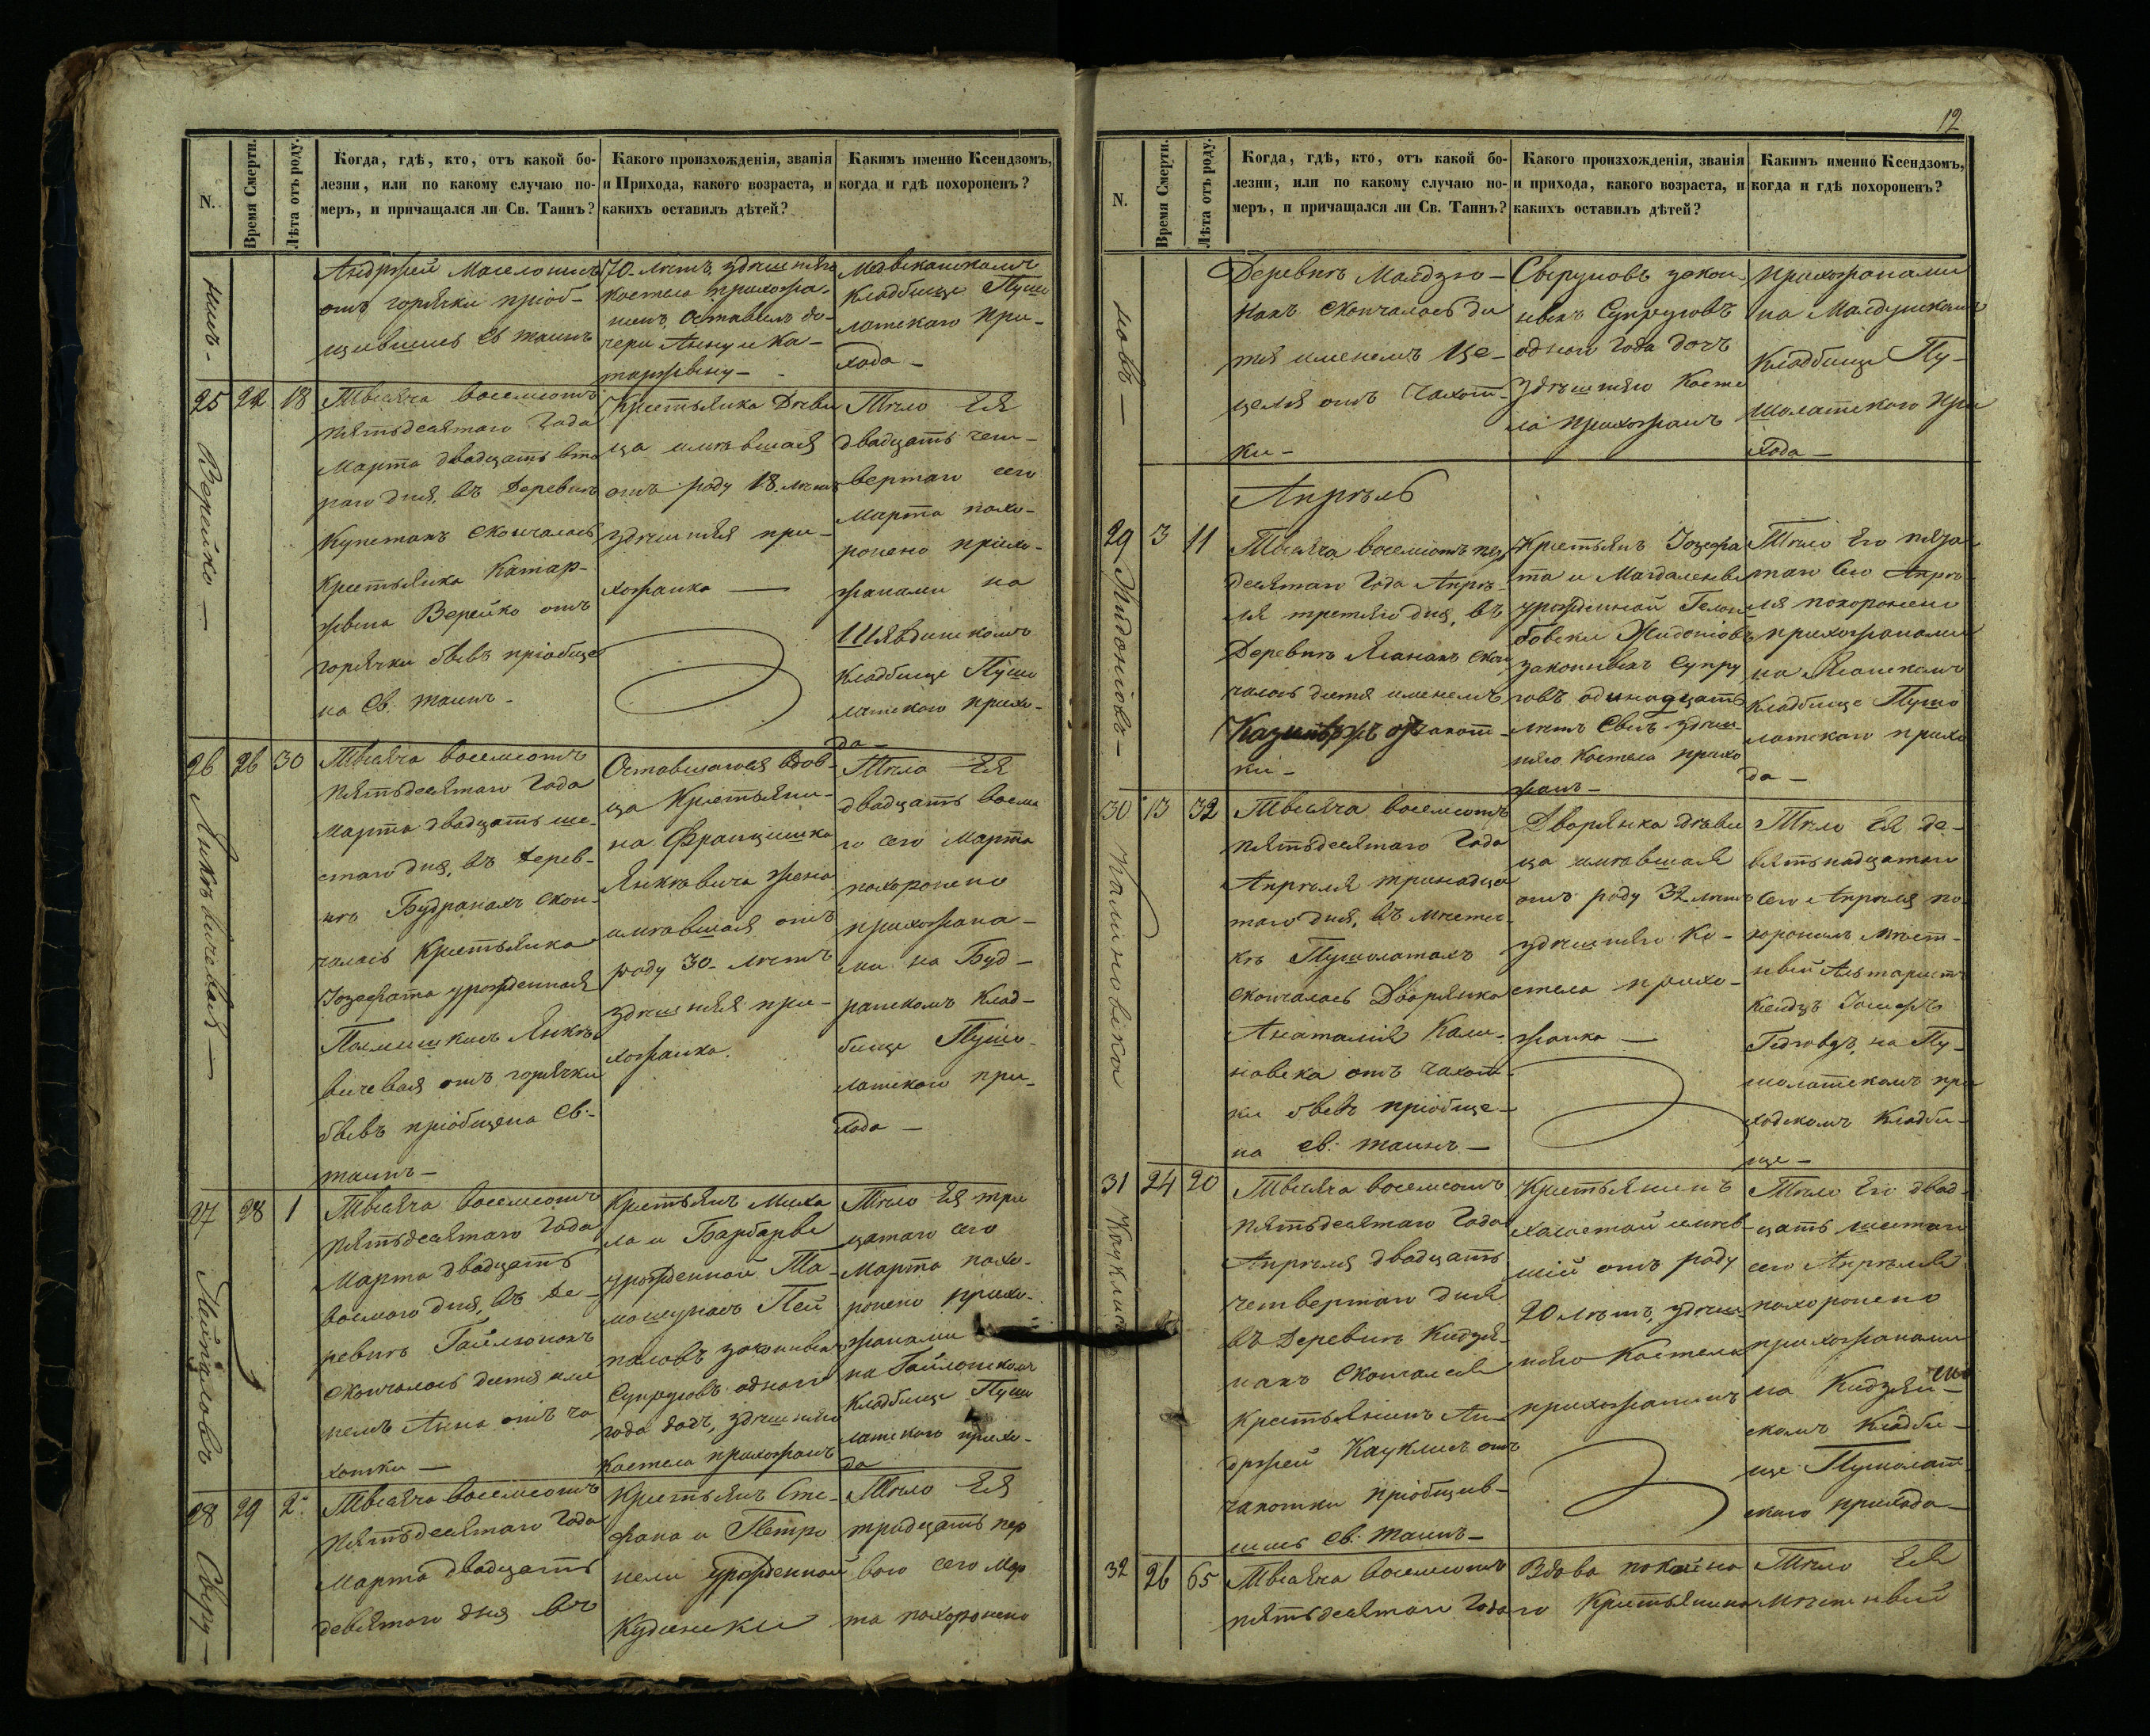 N.
Время Смерти.
Лѣта отъ роду.
Когда, гдѣ, кто, отъ какой бо-
лезни, или по какому случаю по-
меръ, и причащался ли Св. Таинъ?
Какого произхожденія, званія
и Прихода, какого возраста, и
какихъ оставилъ дѣтей?
Какимъ именно Ксендзомъ,
когда и гдѣ похороненъ?
Андржей
отъ горячки пріоб-
щившись Св таинъ
70 лѣтъ, здѣшняго
костела прихожа-
нинъ, Оставилъ до-
чери Анну и Ка-
таржину —
кладбище Пуши
латскаго при-
хода —
25
22
18
Верейко —
Тысяча восемсотъ
пятьдесятаго Года
Марта двадцать вто
раго дня, въ Деревнѣ
скончалась
крестьянка Катар-
жина Верейко отъ
горячки бывъ пріобще
на Св. таинъ —
Крестьянка Дѣви
ца имѣвшая
отъ роду 18 лѣтъ
здѣшняя при-
хожанка —
Тѣло Ея
двадцать чет-
вертаго сего
Марта похо-
ронено прихо-
жанами на
кладбище Пуши
латскаго прихо-
да —
26
26
30
Янкѣвичевая —
Тысяча восемсотъ
пятьдесятаго Года
Марта двадцать ше-
стаго дня, въ дерев-
нѣ Будранахъ скон-
чалась крестьянка
Іозефата урожденная
Янкѣ
вичевая отъ горячки
бывъ пріобщена Св.
таинъ —
Оставшаяся вдов-
ца Крестьяни-
на Францишка
Янкѣвича жена
имѣвшая отъ
роду 30 лѣтъ
здѣшняя при-
хожанка.
Тѣло Ея
двадцать восма
го сего Марта
похоронено
прихожана-
ми на Буд-
ранскомъ Клад-
бище Пуши-
латскаго при-
хода —
27
28
1
Тысяча восемсотъ
пятьдесятаго Года
Марта двадцать
восмаго дня, въ Де-
ревнѣ Гайлюнахъ
скончалось дитя име
немъ Анна отъ ча
хотки —
Крестьянъ Миха
ла и Барбары
урожденной Та-
законныхъ
Супруговъ одного
года дочь, здѣшняго
Костела прихожанъ
Тѣло Ея три
цатаго сего
Марта похо-
ронено прихо-
жанами
на Гайлюнскомъ
Кладбище Пуши
латскаго прихо-
да
28
29
2
Сверу —
Тысяча восемсотъ
пятьдесятаго Года
Марта двадцать
девятаго дня въ
Крестьянъ Сте-
фана и Петро
нели урожденной
Тѣло Ея
тридцать пер
ваго сего Мар
та похоронено
12
N.
Время Смерти.
Лѣта отъ роду.
Когда, гдѣ, кто, отъ какой бо-
лезни, или по какому случаю по-
меръ, и причащался ли Св. Таинъ?
Какого произхожденія, званія
и прихода, какого возраста, и
какихъ оставилъ дѣтей?
Какимъ именно Ксендзомъ,
когда и гдѣ похороненъ?
новъ —
Деревнѣ Малдзю-
нахъ скончалось ди
тя именемъ Це-
целя отъ чахот-
ки —
Сверуновъ закон-
ныхъ Супруговъ
одного года дочь
здѣшняго Косте
ла прихожанъ
прихожанами
на Малдунскомъ
Кладбище Пу-
шолатскаго При
хода —
Апрѣль
29
3
11
Жидоніовъ —
Тысяча восемсотъ пят
десятаго Года Апрѣ-
ля третяго дня, въ
Деревнѣ Яганахъ скон
чалось дитя именемъ
Казимиръ отъ чахот-
ки —
Крестьянъ Іозефа
та и Магдалены
урожденной
Жидоніовъ
законныхъ Супру
говъ одинадцать
лѣтъ Сынъ здѣш-
няго Костела прихо
жанъ —
Тѣло Его пята
таго Сего Апрѣ-
ля похоронено
прихожанами
на Яганскомъ
Кладбище Пушо
латскаго прихо
да —
30
13
32
Калиновска
Тысяча восемсотъ
пятьдесятаго Года
Апрѣля тринадца
таго дня, въ мѣстеч-
кѣ Пушолатахъ
скончалась Дворянка
Анаталія Кали-
новска отъ чахот-
ки бывъ пріобще-
на св. таинъ —
Дворянка дѣви
ца имѣвшая
отъ роду 32 лѣтъ
здѣшняго Ко-
стела прихо-
жанка —
Тѣло Ея де-
вятьнадцатаго
Сего Апрѣля по-
хоронилъ Мѣст-
ный Алтаристъ
Ксендзъ
на Пу-
шолатскомъ при
ходскомъ Кладби-
ще —
31
24
20
Кауклисъ
Тысяча восемсотъ
пятьдесятаго Года
Апрѣля двадцать
четвертаго дня
въ Деревнѣ Кидзя-
нахъ скончался
Крестьянинъ Ан-
држей Кауклисъ отъ
чахотки пріобщив-
шись св. таинъ —
Крестьянинъ
холостой имѣв-
шій отъ роду
20 лѣтъ, здѣш-
няго Костела
прихожанинъ
Тѣло Его двад-
цать шестаго
сего Апрѣля
похоронено
прихожанами
на Кидзян-
скомъ Кладби-
ще Пушолат-
скаго прихода —
32
26
65
Тысяча восемсотъ
пятьдесятаго Года
Вдова покойна
го Крестьянина
Тѣло Ея
Мѣстный